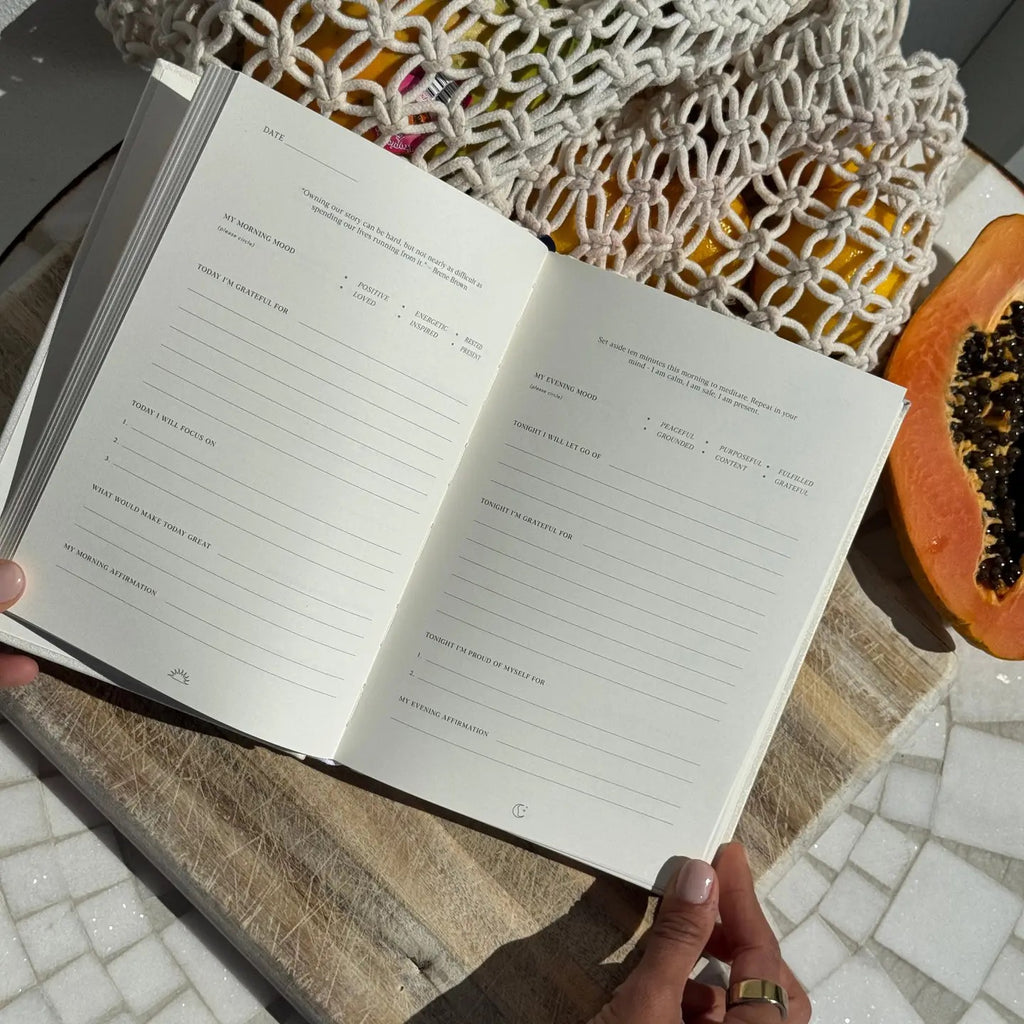 DATE
"Owning our story can be hard, but not nearly as difficult as
spending our lives running from it." – Brene Brown
MY MORNING MOOD
(please circle)
• POSITIVE • ENERGETIC • RESTED
• LOVED • INSPIRED • PRESENT
TODAY I'M GRATEFUL FOR
TODAY I WILL FOCUS ON
1.
2.
3
WHAT WOULD MAKE TODAY GREAT
MY MORNING AFFIRMATION
Set aside ten minutes this morning to meditate. Repeat in your
mind - I am calm, I am safe, I am present.
MY EVENING MOOD
(please circle)
• PEACEFUL • PURPOSEFUL • FULFILLED
• GROUNDED • CONTENT • GRATEFUL
TONIGHT I WILL LET GO OF
TONIGHT I'M GRATEFUL FOR
TONIGHT I'M PROUD OF MYSELF FOR
1.
2.
MY EVENING AFFIRMATION